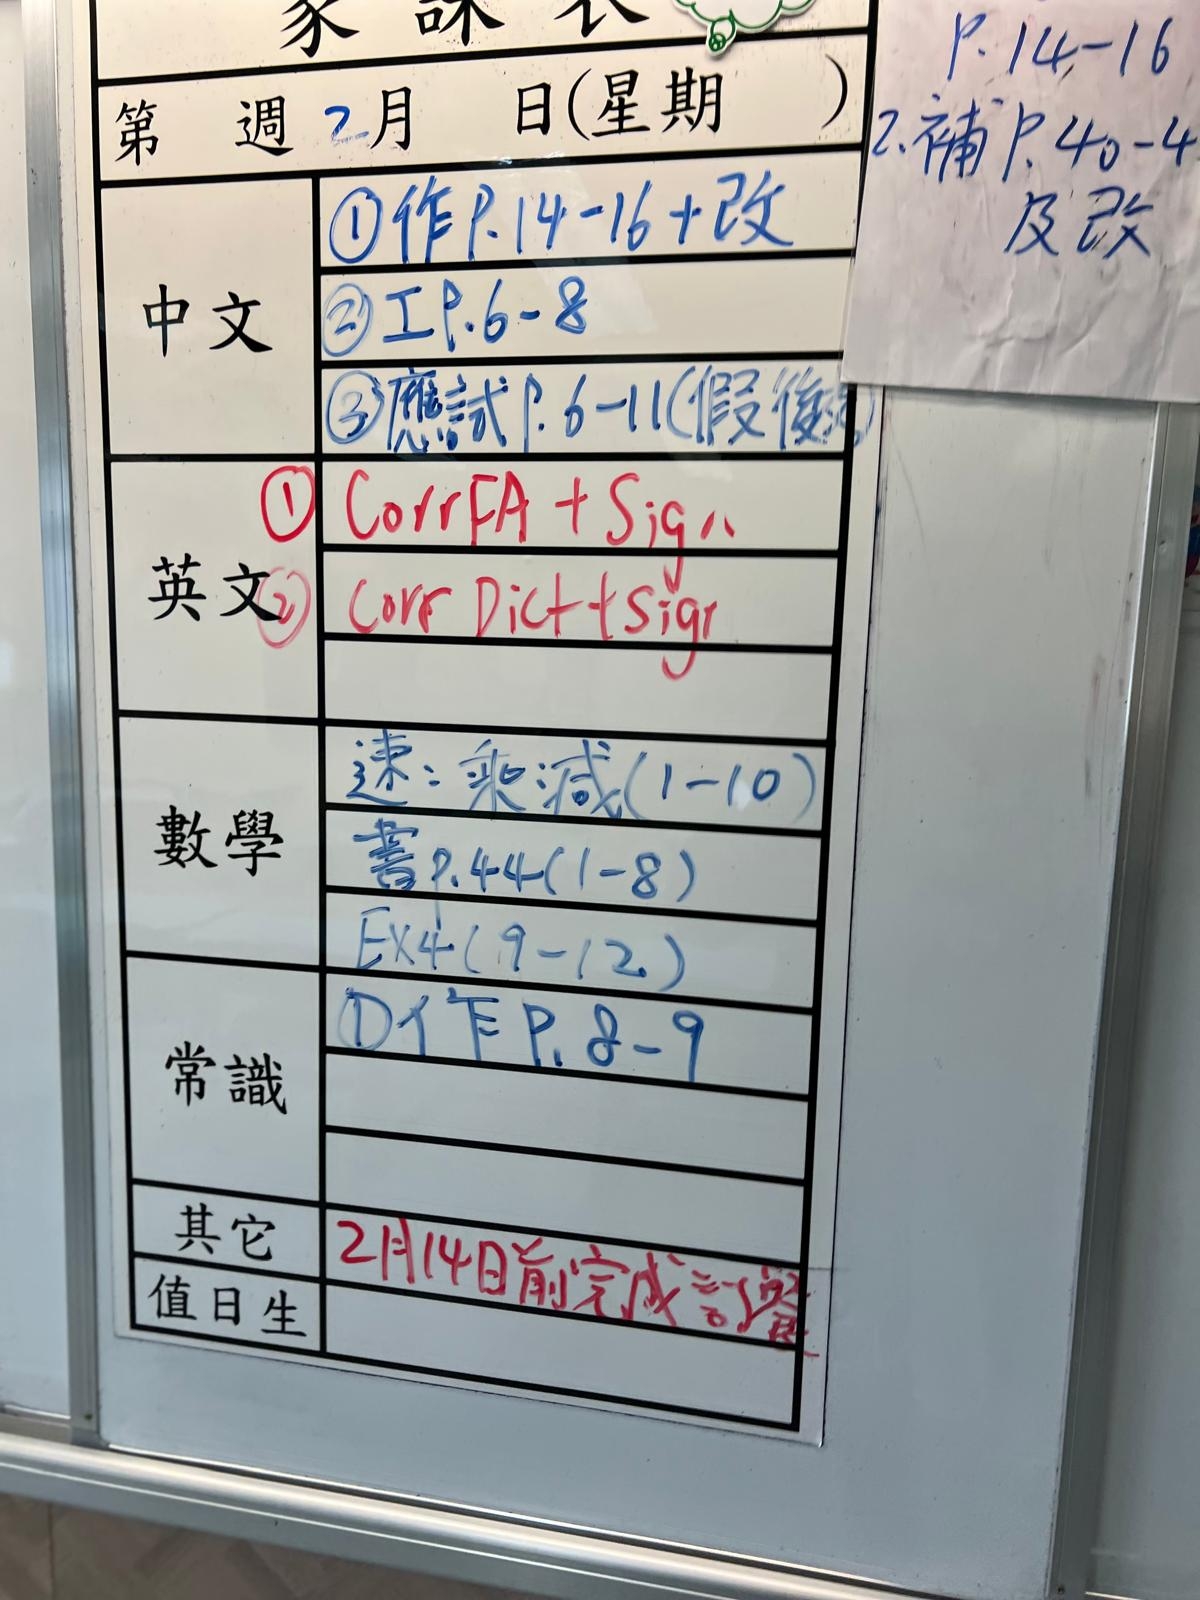 家課表
第 週 2月 日(星期 )
P.14-16
2.補P.40-4
及改
中文
①作P.14-16+改
②工P.6-8
③應試P.6-11(假後
英文
① Corr FA + Sign
② Corr Dict + Sign
數學
速:乘減(1-10)
書P.44(1-8)
EX4(9-12)
常識
①作P.8-9
其它
2月14日前完成
值日生